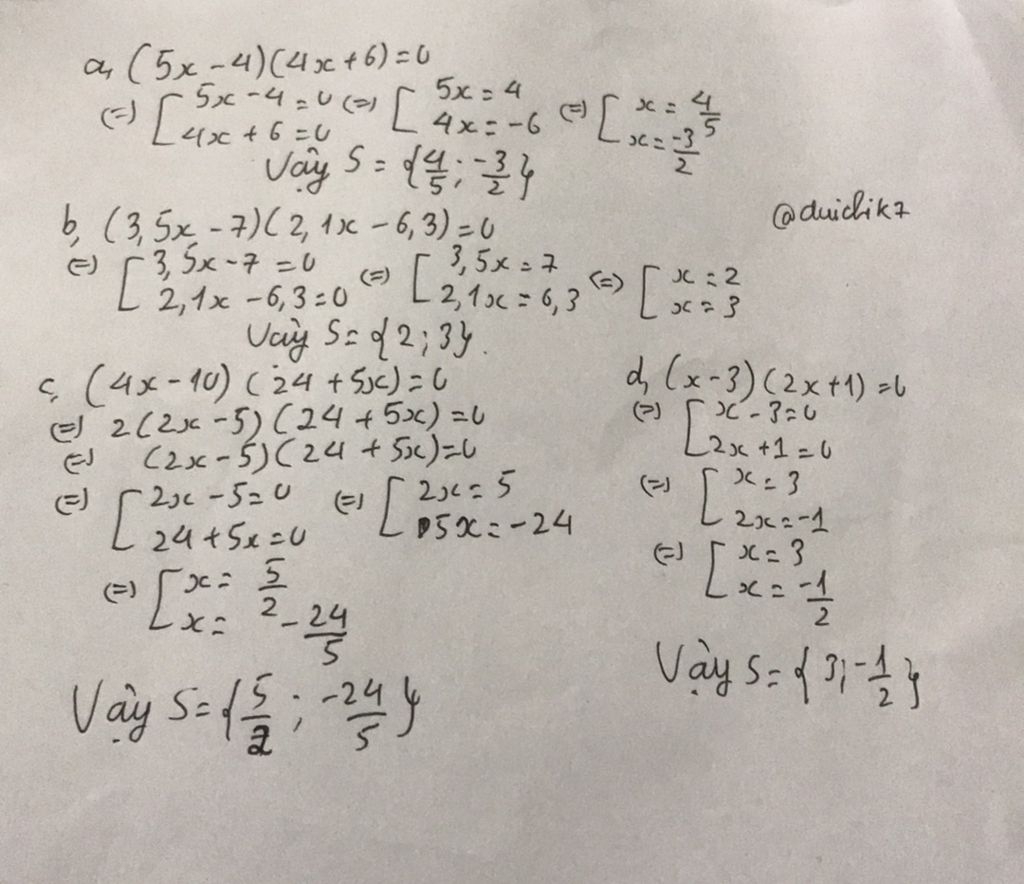 a, (5x - 4)(4x + 6) = 0
(=) [ 5x - 4 = 0 (=) [ 5x = 4 (=) [ x = 4/5
4x + 6 = 0 4x = -6 x = -3/2
Vậy S = {4/5 ; -3/2}
b, (3,5x - 7)(2,1x - 6,3) = 0
@duichik7
(=) [ 3,5x - 7 = 0 (=) [ 3,5x = 7 (=) [ x = 2
2,1x - 6,3 = 0 2,1x = 6,3 x = 3
Vậy S = {2 ; 3}.
c, (4x - 10)(24 + 5x) = 0
(=) 2(2x - 5)(24 + 5x) = 0
(=) (2x - 5)(24 + 5x) = 0
(=) [ 2x - 5 = 0 (=) [ 2x = 5
24 + 5x = 0 5x = -24
(=) [ x = 5/2
x = -24/5
Vậy S = {5/2 ; -24/5}
d, (x - 3)(2x + 1) = 0
(=) [ x - 3 = 0
2x + 1 = 0
(=) [ x = 3
2x = -1
(=) [ x = 3
x = -1/2
Vậy S = {3 ; -1/2}